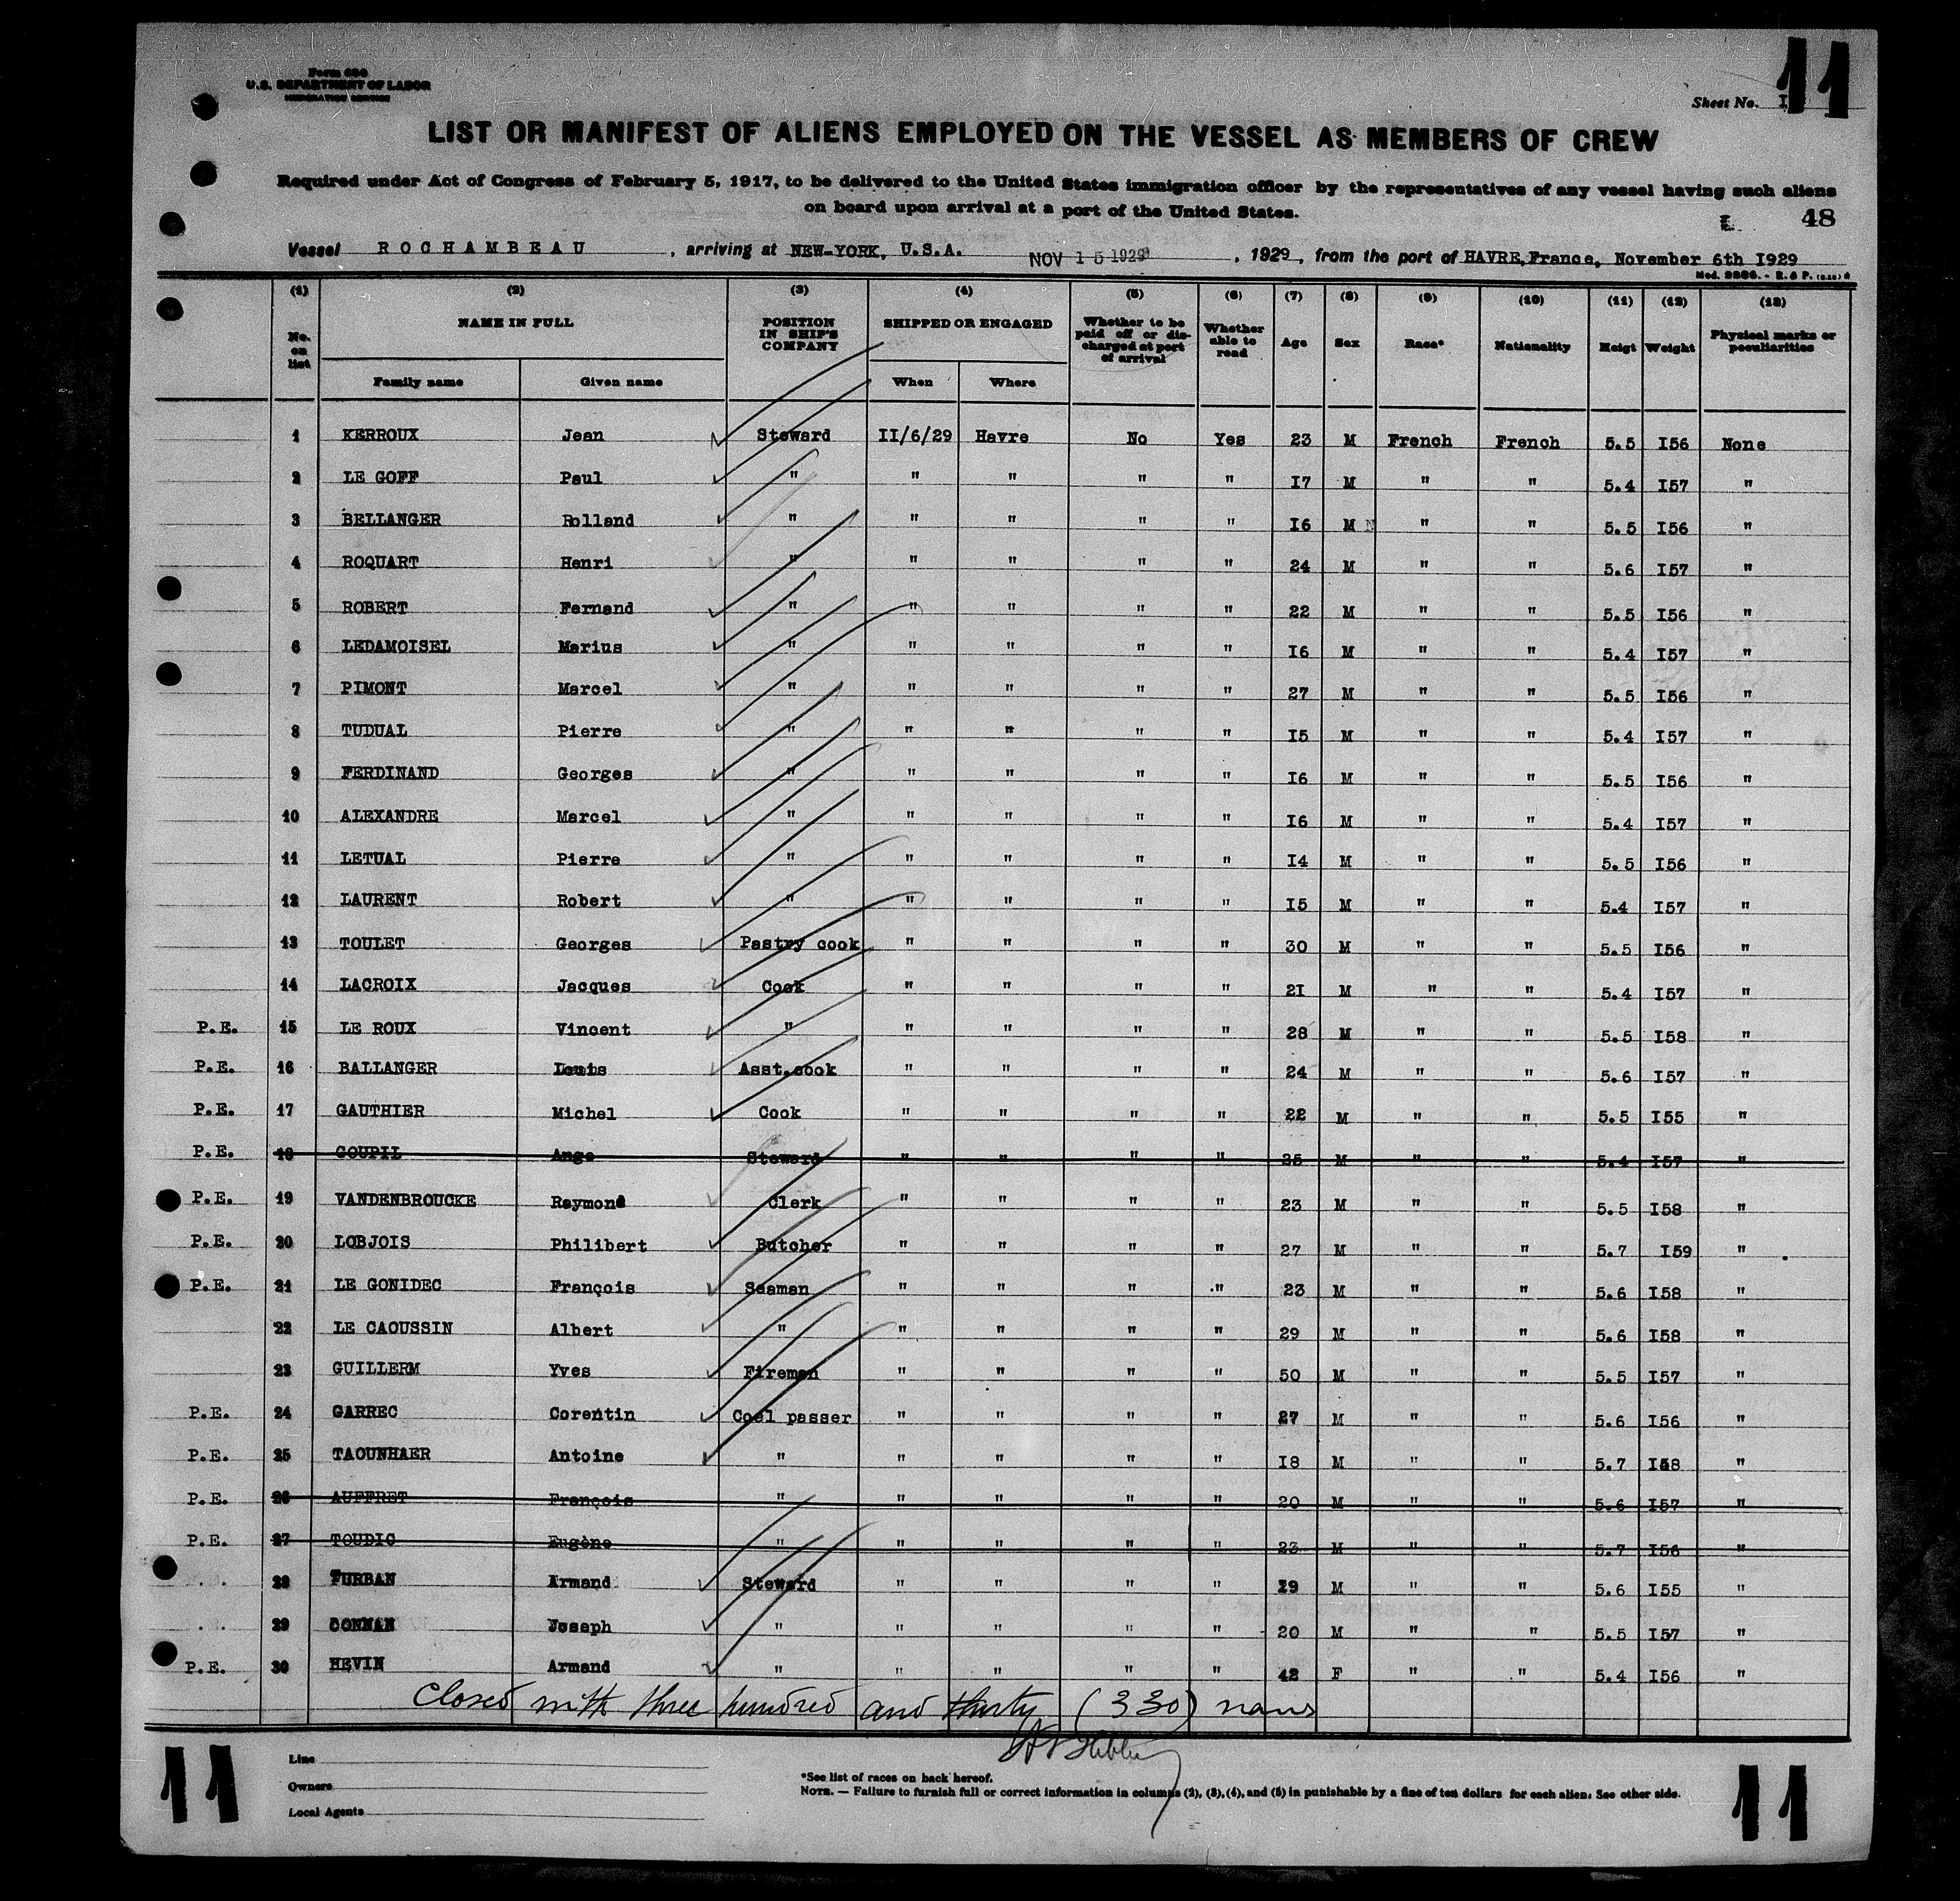 Form 680
U.S. DEPARTMENT OF LABOR
IMMIGRATION SERVICE
11
Sheet No. I
LIST OR MANIFEST OF ALIENS EMPLOYED ON THE VESSEL AS MEMBERS OF CREW
Required under Act of Congress of February 5, 1917, to be delivered to the United States immigration officer by the representatives of any vessel having such aliens
on board upon arrival at a port of the United States.
48
Vessel ROCHAMBEAU , arriving at NEW-YORK, U.S.A. NOV 15 1929 , 1929, from the port of HAVRE, France, November 6th 1929
(1) (2) (3) (4) (5) (6) (7) (8) (9) (10) (11) (12) (13)
No. on list NAME IN FULL Family name Given name POSITION IN SHIP'S COMPANY SHIPPED OR ENGAGED When Where Whether to be paid off or discharged at port of arrival Whether able to read Age Sex Race* Nationality Heigt Weight Physical marks or peculiarities
1 KERROUX Jean Steward II/6/29 Havre No Yes 23 M French French 5.5 I56 None
2 LE GOFF Paul " " " " " I7 M " " 5.4 I57 "
3 BELLANGER Rolland " " " " " I6 M " " 5.5 I56 "
4 ROQUART Henri " " " " " 24 M " " 5.6 I57 "
5 ROBERT Fernand " " " " " 22 M " " 5.5 I56 "
6 LEDAMOISEL Marius " " " " " I6 M " " 5.4 I57 "
7 PIMONT Marcel " " " " " 27 M " " 5.5 I56 "
8 TUDUAL Pierre " " " " " I5 M " " 5.4 I57 "
9 FERDINAND Georges " " " " " I6 M " " 5.5 I56 "
10 ALEXANDRE Marcel " " " " " I6 M " " 5.4 I57 "
11 LETUAL Pierre " " " " " I4 M " " 5.5 I56 "
12 LAURENT Robert " " " " " I5 M " " 5.4 I57 "
13 TOULET Georges Pastry cook " " " " 30 M " " 5.5 I56 "
14 LACROIX Jacques Cook " " " " 2I M " " 5.4 I57 "
P.E. 15 LE ROUX Vincent " " " " " 28 M " " 5.5 I58 "
P.E. 16 BALLANGER Louis Asst.cook " " " " 24 M " " 5.6 I57 "
P.E. 17 GAUTHIER Michel Cook " " " " 22 M " " 5.5 I55 "
P.E. 18 GOUPIL Ange Steward " " " " 25 M " " 5.4 I57 "
P.E. 19 VANDENBROUCKE Raymond Clerk " " " " 23 M " " 5.5 I58 "
P.E. 20 LOBJOIS Philibert Butcher " " " " 27 M " " 5.7 I59 "
P.E. 21 LE GONIDEC François Seaman " " " " 23 M " " 5.6 I58 "
22 LE CAOUSSIN Albert " " " " " 29 M " " 5.6 I58 "
23 GUILLERM Yves Fireman " " " " 50 M " " 5.5 I57 "
P.E. 24 GARREC Corentin Coal passer " " " " 27 M " " 5.6 I56 "
P.E. 25 TAOUNHAER Antoine " " " " " I8 M " " 5.7 I58 "
P.E. 26 AUFFRET François " " " " " 20 M " " 5.6 I57 "
P.E. 27 TOUDIC Eugène " " " " " 23 M " " 5.7 I56 "
28 TURBAN Armand Steward " " " " 29 M " " 5.6 I55 "
29 CONNAN Joseph " " " " " 20 M " " 5.5 I57 "
P.E. 30 HEVIN Armand " " " " " 42 F " " 5.4 I56 "
Closed with three hundred and thirty (330) names
11
Line
Owners
Local Agents
*See list of races on back hereof.
NOTE. — Failure to furnish full or correct information in columns (2), (3), (4), and (5) in punishable by a fine of ten dollars for each alien. See other side.
11